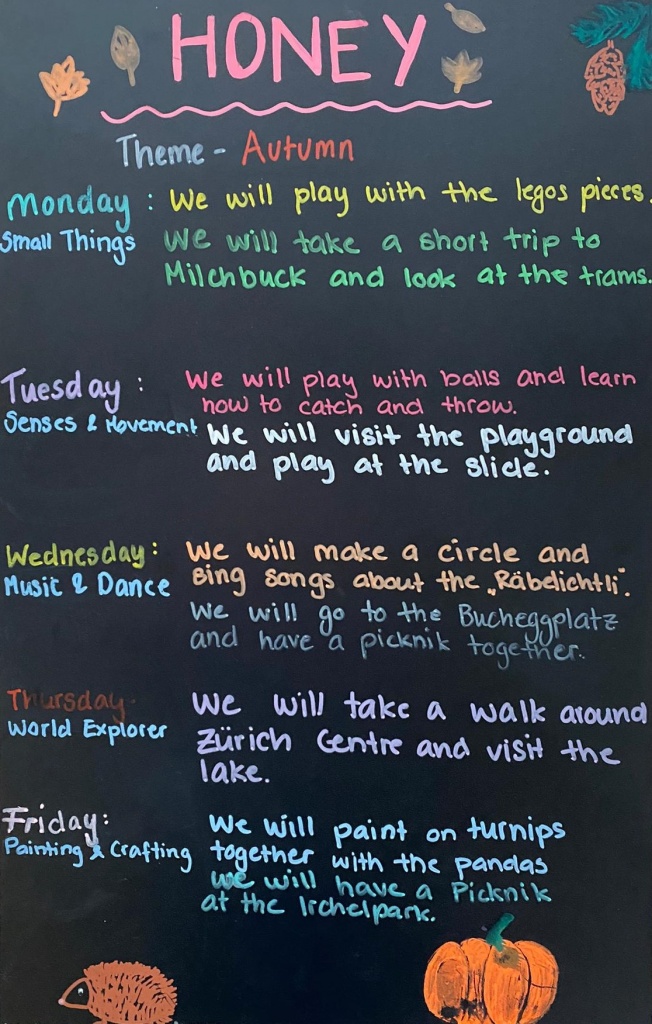 HONEY
Theme - Autumn
Monday : We will play with the legos pieces.
Small Things We will take a short trip to
Milchbuck and look at the trams.
Tuesday : We will play with balls and learn
how to catch and throw.
Senses & Movement We will visit the playground
and play at the slide.
Wednesday: We will make a circle and
Music & Dance sing songs about the „Räbelichtli".
We will go to the Bucheggplatz
and have a picknik together.
Thursday We will take a walk around
World Explorer Zürich Centre and visit the
lake.
Friday: We will paint on turnips
Painting & Crafting together with the pandas
We will have a Picknik
at the Irchelpark.